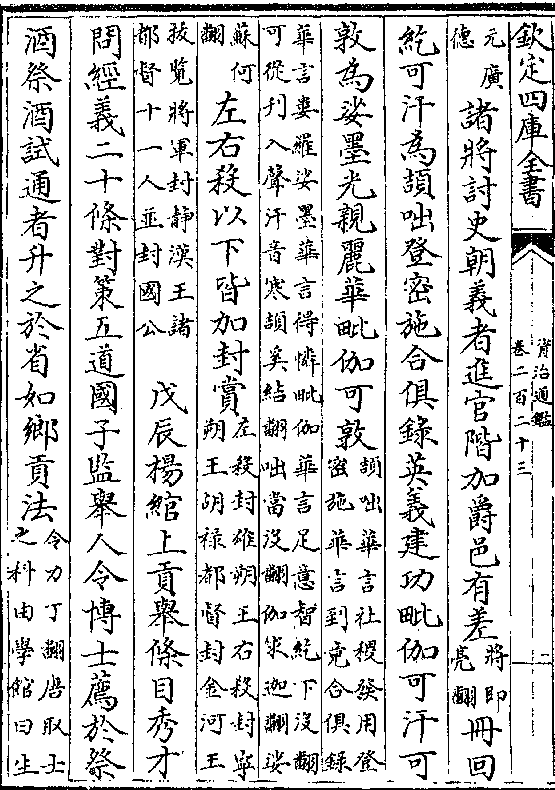 欽定四庫全書
資治通鑑
卷二百二十三
二
元廣
德
諸將討史朝義者進官階加爵邑有差
將即
亮翻
冊回
紇可汗為頡咄登密施合俱錄英義建功毗伽可汗可
敦為娑墨光親麗華毗伽可敦
頡咄華言社稷發用登
密施華言到竟合俱錄
華言婁羅娑墨華言得憐毗伽華言足意智紇下沒翻
可從刋入聲汗音寒頡奚結翻咄當沒翻伽求迦翻娑
蘇何
翻
左右殺以下皆加封賞
左殺封雄朔王右殺封寧
朔王胡祿都督封金河王
拔覽將軍封靜漠王諸
都督十一人並封國公
戊辰楊綰上貢舉條目秀才
問經義二十條對策五道國子監舉人令博士薦於祭
酒祭酒試通者升之於省如鄉貢法
令力丁翻唐取士
之科由學館曰生